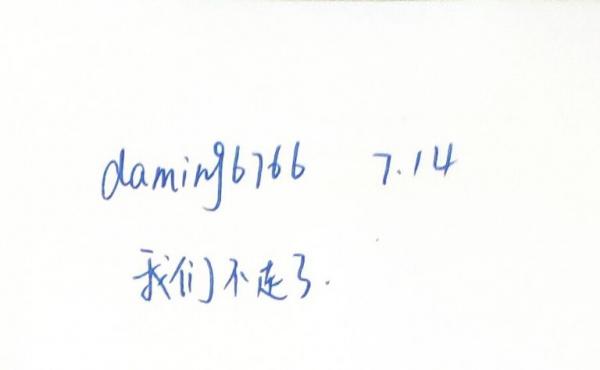 daming6766 7.14
我们不走了.